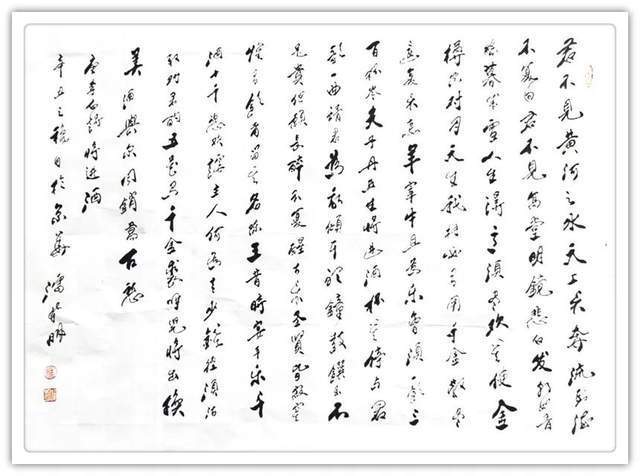 君不見黃河之水天上來奔流到海
不復回君不見高堂明鏡悲白发朝如青
丝暮成雪人生得意須盡欢莫使金
樽空对月天生我材必有用千金散尽
還復来烹羊宰牛且為乐會須一飲三
百杯岑夫子丹丘生將進酒杯莫停与君
歌一曲請君為我傾耳聽鐘鼓饌玉不
足貴但願長醉不復醒古來圣賢皆寂寞
惟有飲者留其名陈王昔時宴平乐斗
酒十千恣欢謔主人何為言少錢徑須沽
取对君酌五花马千金裘呼兒將出換
美酒與尔同銷萬古愁
唐李白詩將進酒
辛丑之秋月於京華
潘 明